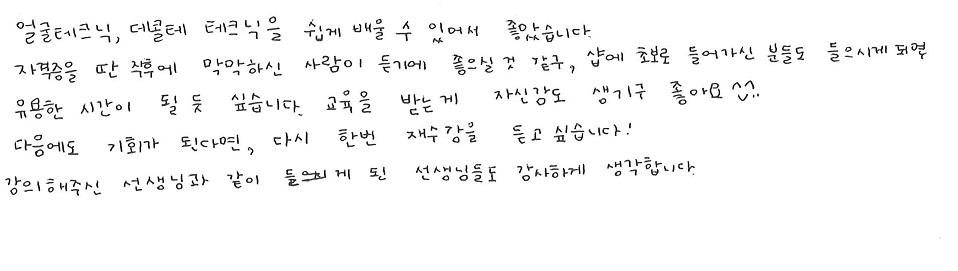 얼굴테크닉, 데콜테 테크닉을 쉽게 배울 수 있어서 좋았습니다.
자격증을 딴 직후에 막막하신 사람이 듣기에 좋으실 것 같구, 샵에 초보로 들어가신 분들도 들으시게 되면
유용한 시간이 될 듯 싶습니다. 교육을 받는게 자신감도 생기구 좋아요 ^^..
다음에도 기회가 된다면, 다시 한번 재수강을 듣고 싶습니다!
강의해주신 선생님과 같이 듣게 된 선생님들도 감사하게 생각합니다.